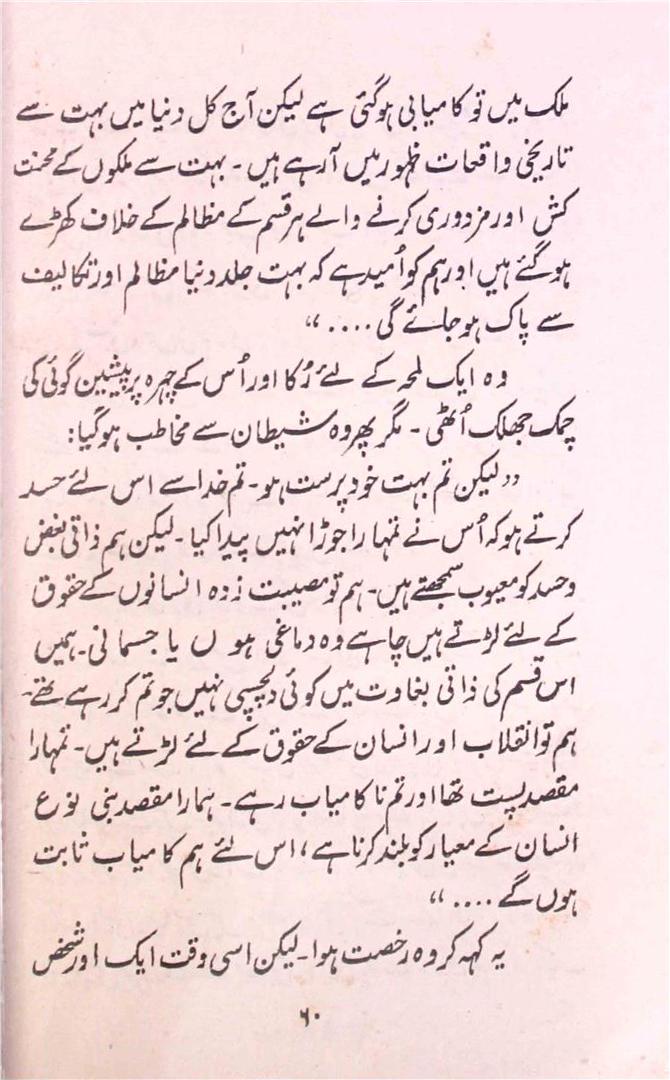 ملک میں تو کامیابی ہوگئی ہے لیکن آج کل دنیا میں بہت سے
تاریخی واقعات ظہور میں آرہے ہیں۔ بہت سے ملکوں کے محنت
کش اور مزدوری کرنے والے ہر قسم کے مظالم کے خلاف کھڑے
ہوگئے ہیں اور ہم کو اُمید ہے کہ بہت جلد دنیا مظالم اور تکالیف
سے پاک ہو جائے گی ....“
وہ ایک لمحہ کے لئے رُکا اور اُس کے چہرہ پر پیشین گوئی کی
چمک جھلک اُٹھی۔ مگر پھر وہ شیطان سے مخاطب ہوگیا:
”لیکن تم بہت خود پرست ہو۔ تم خدا سے اس لئے حسد
کرتے ہو کہ اُس نے تمہارا جوڑا نہیں پیدا کیا۔ لیکن ہم ذاتی بغض
وحسد کو معیوب سمجھتے ہیں۔ ہم تو مصیبت زدہ انسانوں کے حقوق
کے لئے لڑتے ہیں چاہے وہ دماغی ہوں یا جسمانی۔ ہمیں
اس قسم کی ذاتی بغاوت میں کوئی دلچسپی نہیں جو تم کر رہے تھے۔
ہم تو انقلاب اور انسان کے حقوق کے لئے لڑتے ہیں۔ تمہارا
مقصد پست تھا اور تم ناکامیاب رہے۔ ہمارا مقصد بنی نوع
انسان کے معیار کو بلند کرنا ہے، اس لئے ہم کامیاب ثابت
ہوں گے ....“
یہ کہہ کر وہ رخصت ہوا۔ لیکن اسی وقت ایک اور شخص
۶۰